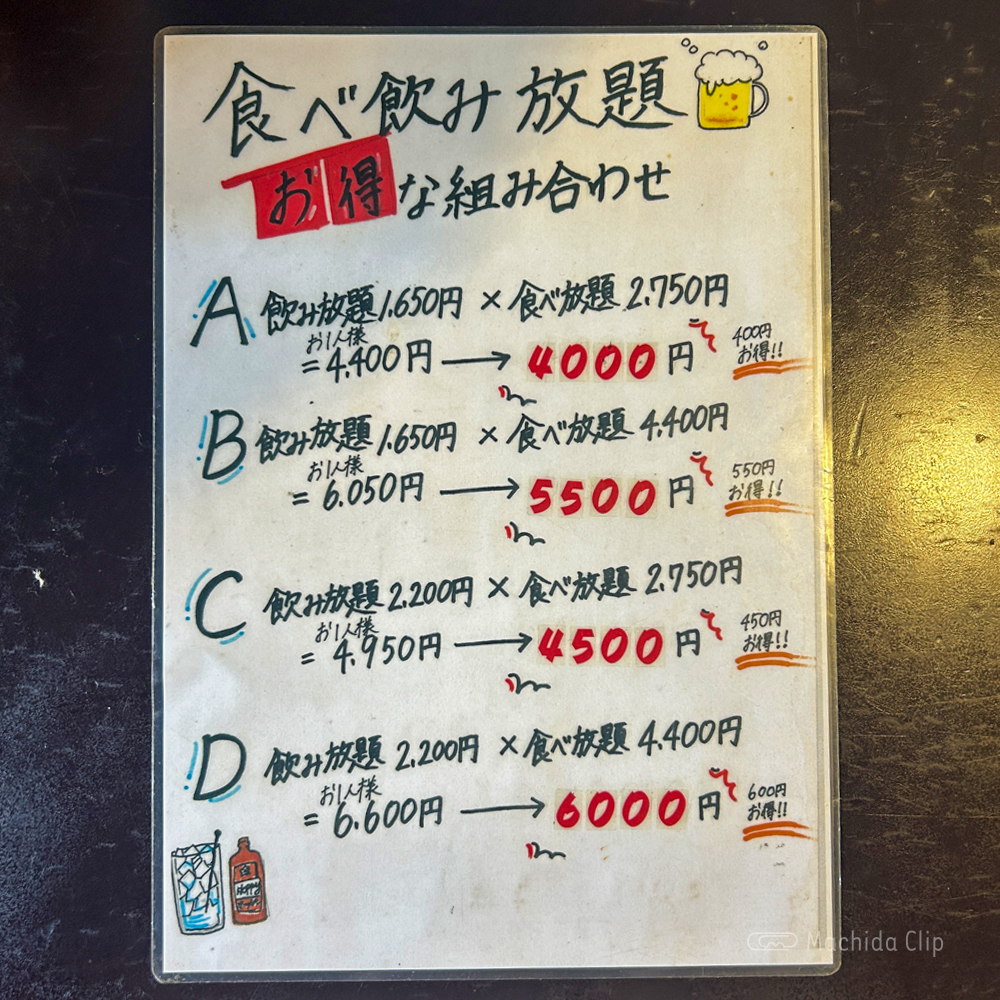 食べ飲み放題
お得な組み合わせ
A 飲み放題1.650円 × 食べ放題 2.750円
お1人様
=4.400円 → 4000円
400円
お得!!
B 飲み放題1.650円 × 食べ放題 4.400円
お1人様
= 6.050円 → 5500円
550円
お得!!
C 飲み放題 2.200円 × 食べ放題 2.750円
お1人様
= 4.950円 → 4500円
450円
お得!!
D 飲み放題 2.200円 × 食べ放題 4.400円
お1人様
= 6.600円 → 6000円
600円
お得!!
Hoppy
Machida Clip